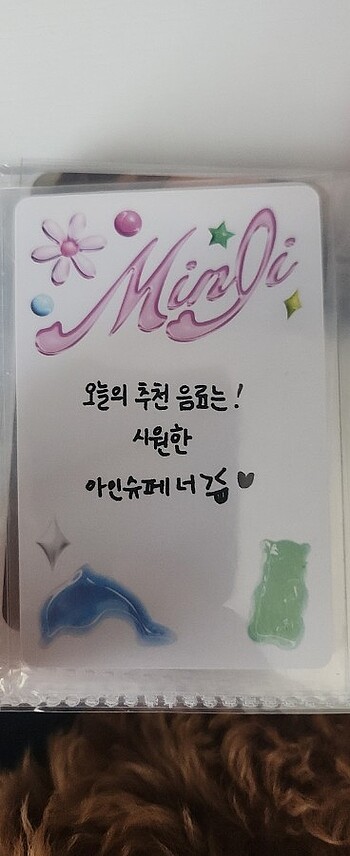 MinJi
오늘의 추천 음료는!
시원한
아인슈페너